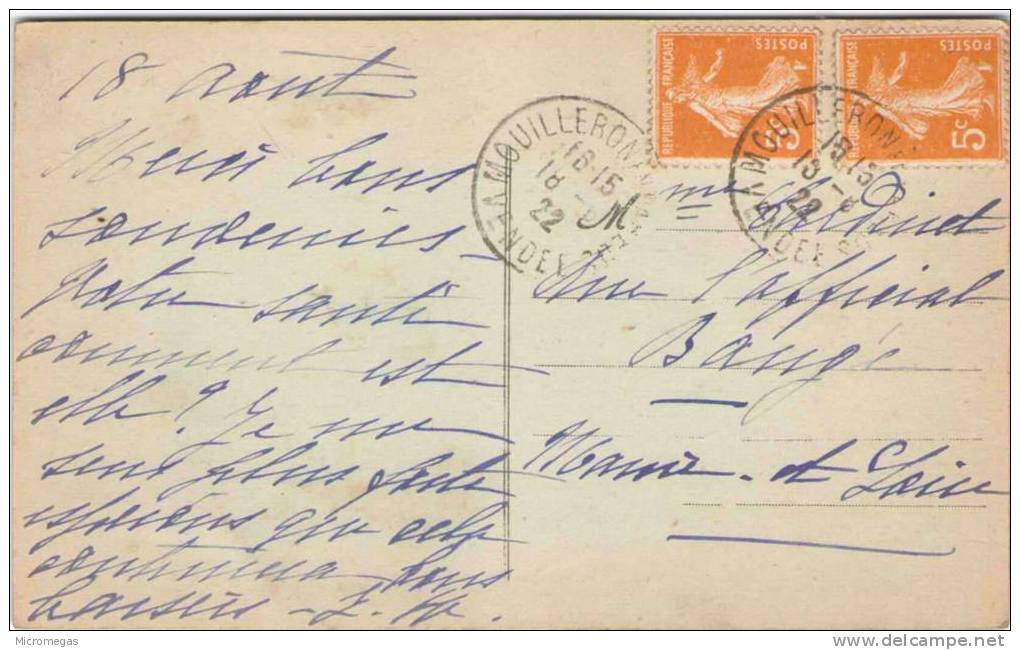 18 août
Merci bons
souvenirs
votre santé
comment est
elle ? Je me
sens plus forte
espérons que cela
continuera bons
baisers
RÉPUBLIQUE FRANÇAISE
POSTES
5c
RÉPUBLIQUE FRANÇAISE
POSTES
5c
MOUILLERON
16-15
18 -8
22
VENDEE
MOUILLERON
15-15
18 -8
22
VENDEE
M
Mme
l'official
Baugé
Maine-et-Loire
Micromegas
www.delcampe.net